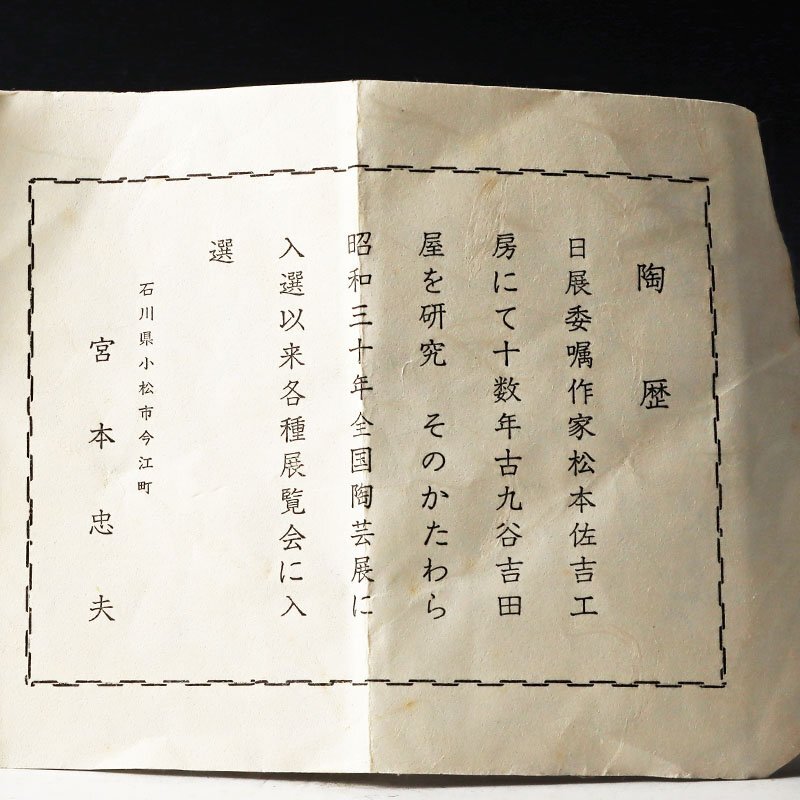 陶歴
日展委嘱作家松本佐吉工
房にて十数年古九谷吉田
屋を研究　そのかたわら
昭和三十年全国陶芸展に
入選以来各種展覧会に入
選
石川県小松市今江町
宮本忠夫